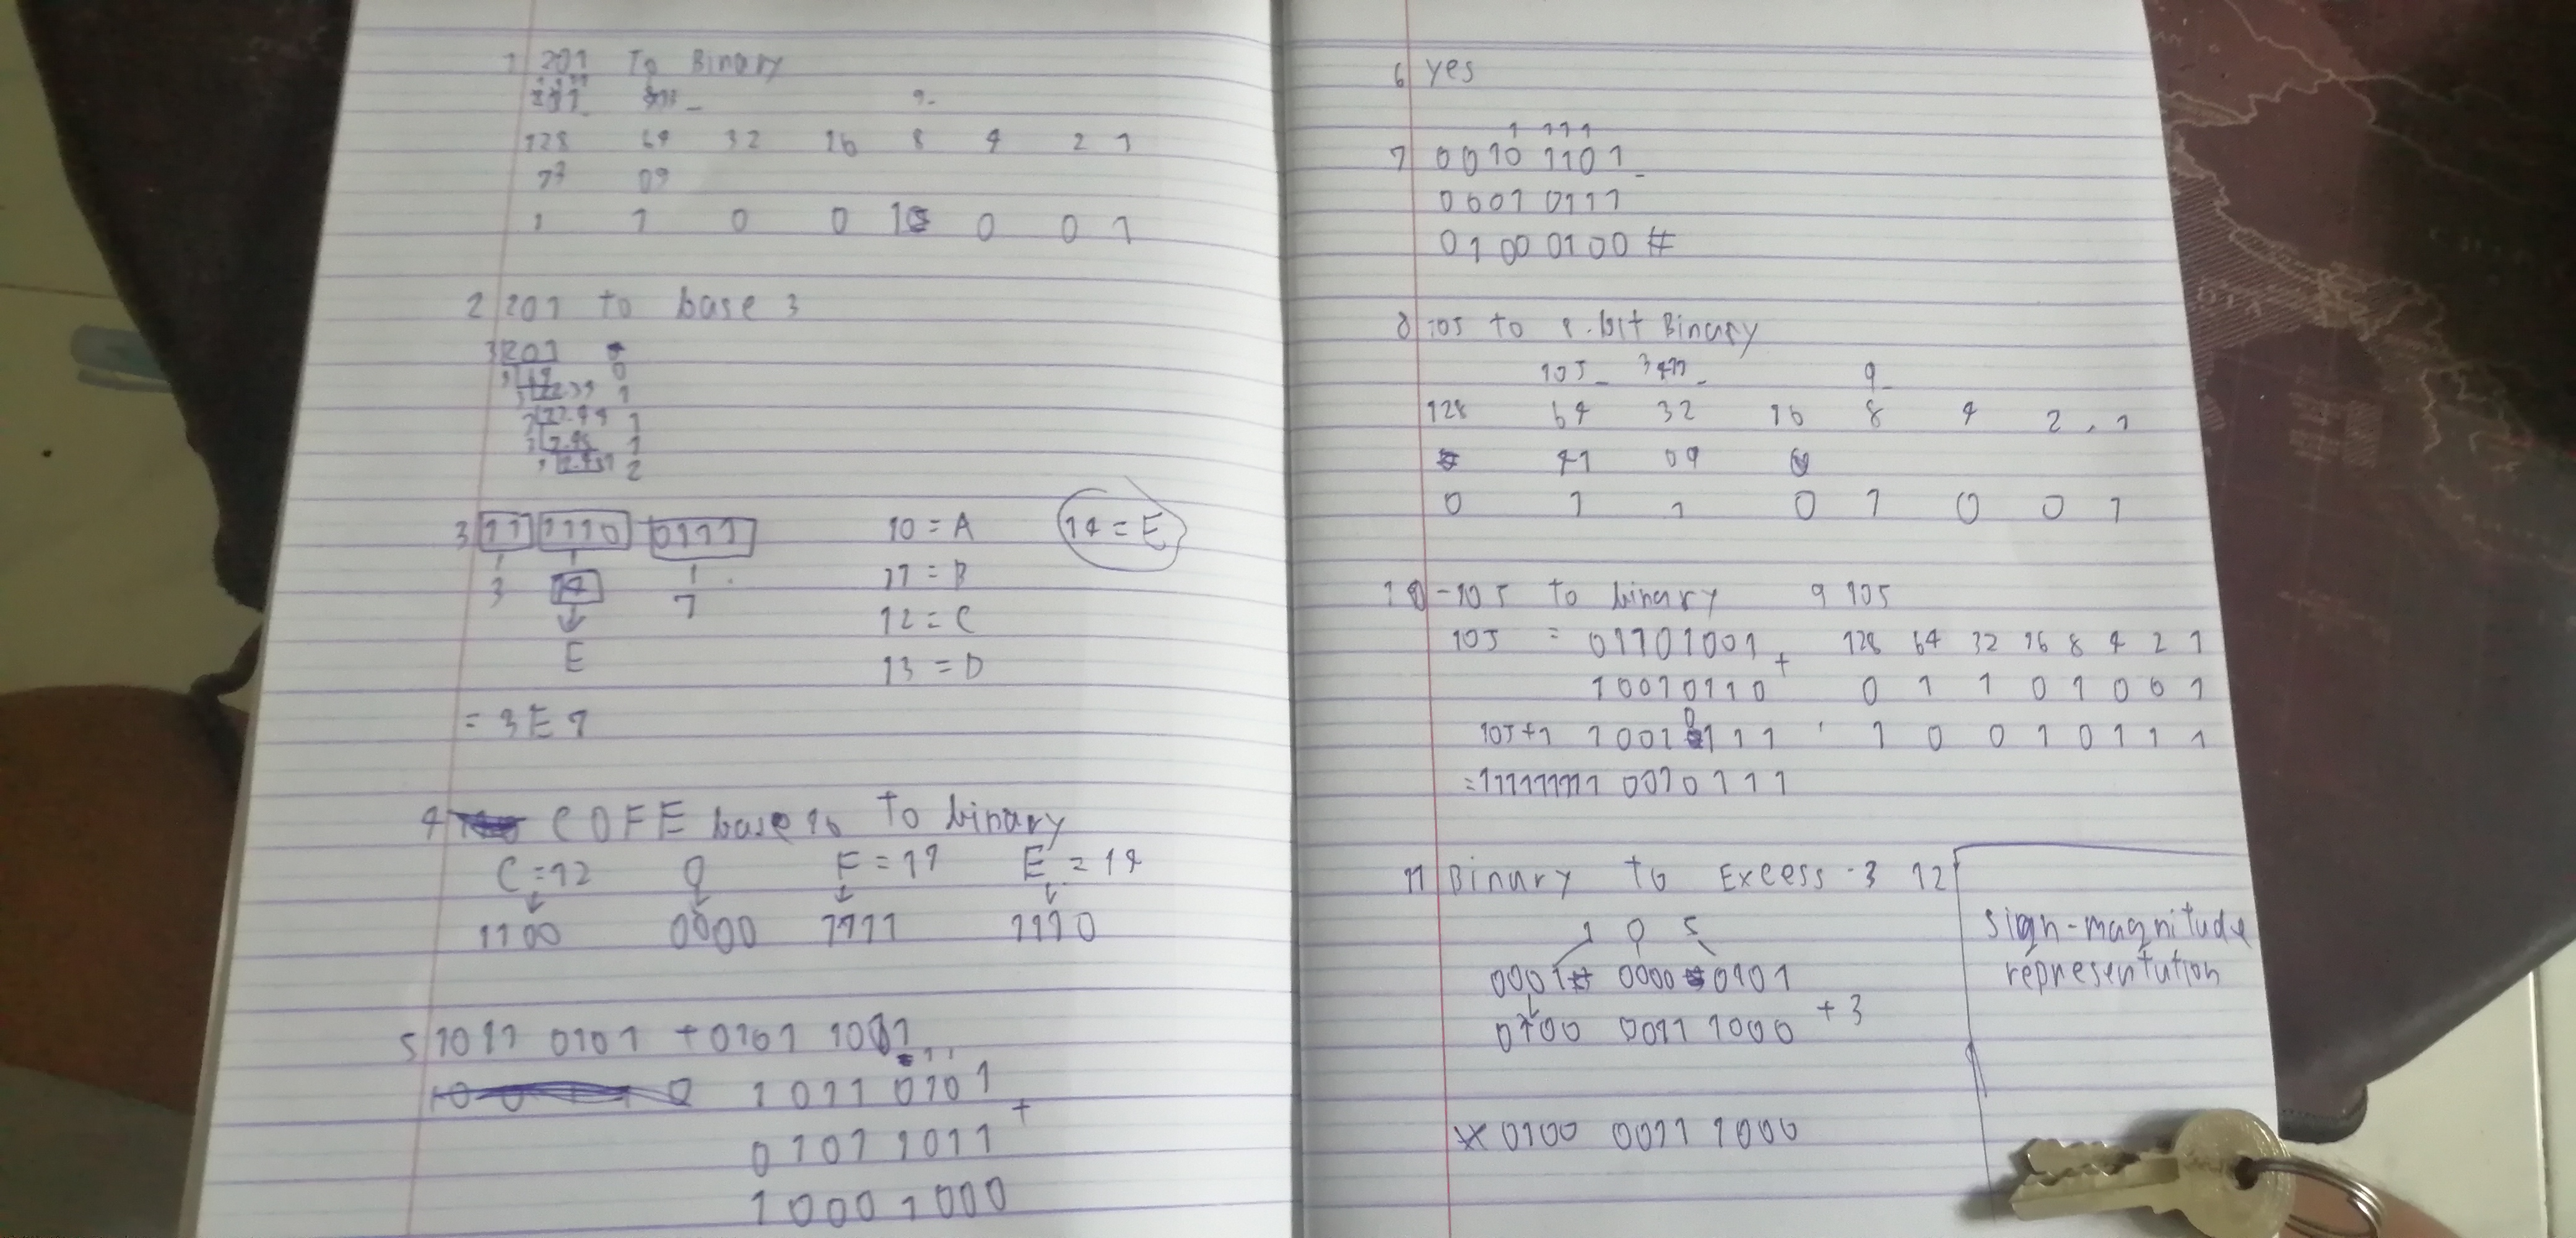 1 201 To Binary
9-
128 64 32 16 8 4 2 1
77 09
1 1 0 0 1 0 0 1
2 201 to base 3
3 201
0
1
1
1
2
3 11 1110 0111 10 = A 14 = E
3 14 7 11 = B
E 12 = C
13 = D
= 3E7
4 C0FE base 16 To binary
C=12 0 F=11 E=14
1100 0000 1111 1110
5 1011 0101 + 0101 1011
0 1011 0101
+
0101 1011
1000 1000
6 yes
1 111
7 0010 1101 -
0001 0111
0100 0100 #
8 105 to 8.bit Binary
105 - 9 -
128 64 32 16 8 4 2 . 1
41 09
0 1 1 0 1 0 0 1
10 -105 to binary 9 105
105 = 01101001 + 128 64 32 16 8 4 2 1
10010110 0 1 1 0 1 0 0 1
105+1 10010111 1 0 0 1 0 1 1 1
=111111111 0010111
11 Binary to Excess-3 12
1 0 5 sign-magnitude
0001 0000 0101 representution
0100 0011 1000 + 3
0100 0011 1000